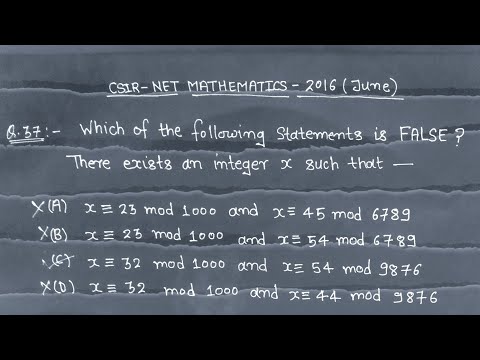 CSIR-NET MATHEMATICS - 2016 (June)
Q.37:- Which of the following statements is FALSE?
There exists an integer x such that —
X(A) x ≡ 23 mod 1000 and x ≡ 45 mod 6789
X(B) x ≡ 23 mod 1000 and x ≡ 54 mod 6789
(C) x ≡ 32 mod 1000 and x ≡ 54 mod 9876
X(D) x ≡ 32 mod 1000 and x ≡ 44 mod 9876